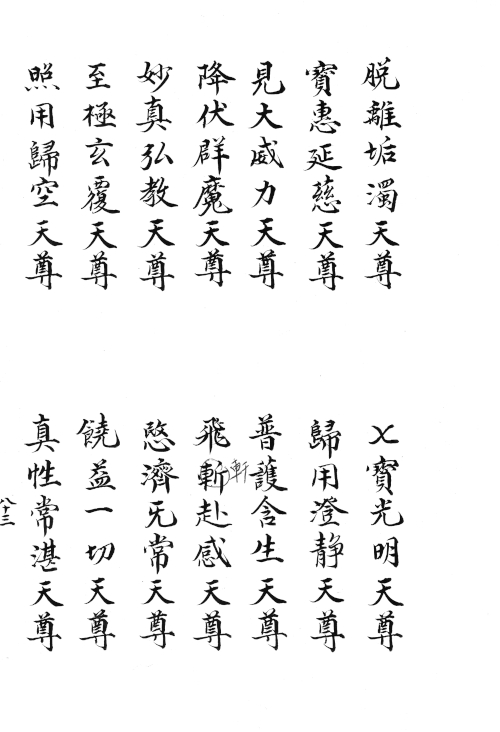 脫離垢濁天尊
乂寶光明天尊
寶惠延慈天尊
歸用澄靜天尊
見大威力天尊
普護含生天尊
降伏群魔天尊
飛斬赴感天尊
軒
妙真弘教天尊
愍濟旡常天尊
至極玄覆天尊
饒益一切天尊
照用歸空天尊
真性常湛天尊
八十三